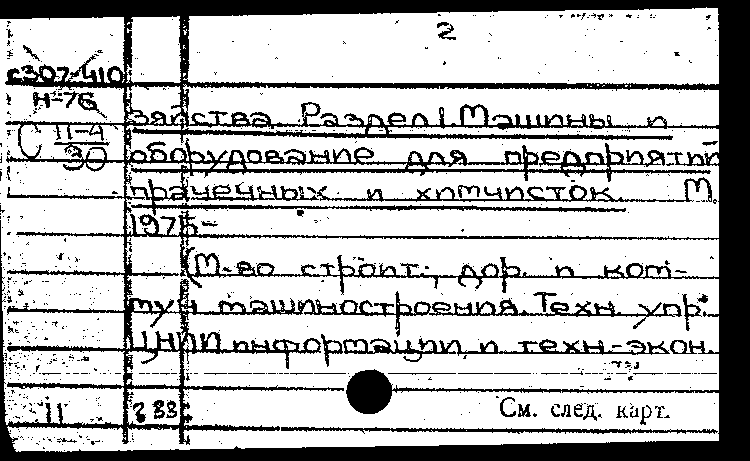 2
с307-410
Н-76
С II-4
30
зяйства. Раздел I. Машины и
оборудование для предприятий
прачечных и химчисток. М.
1975-
(М-во строит., дор. и ком-
мун машиностроения. Техн упр.
ЦНИИ информации и техн-экон.
II
См. след. карт.